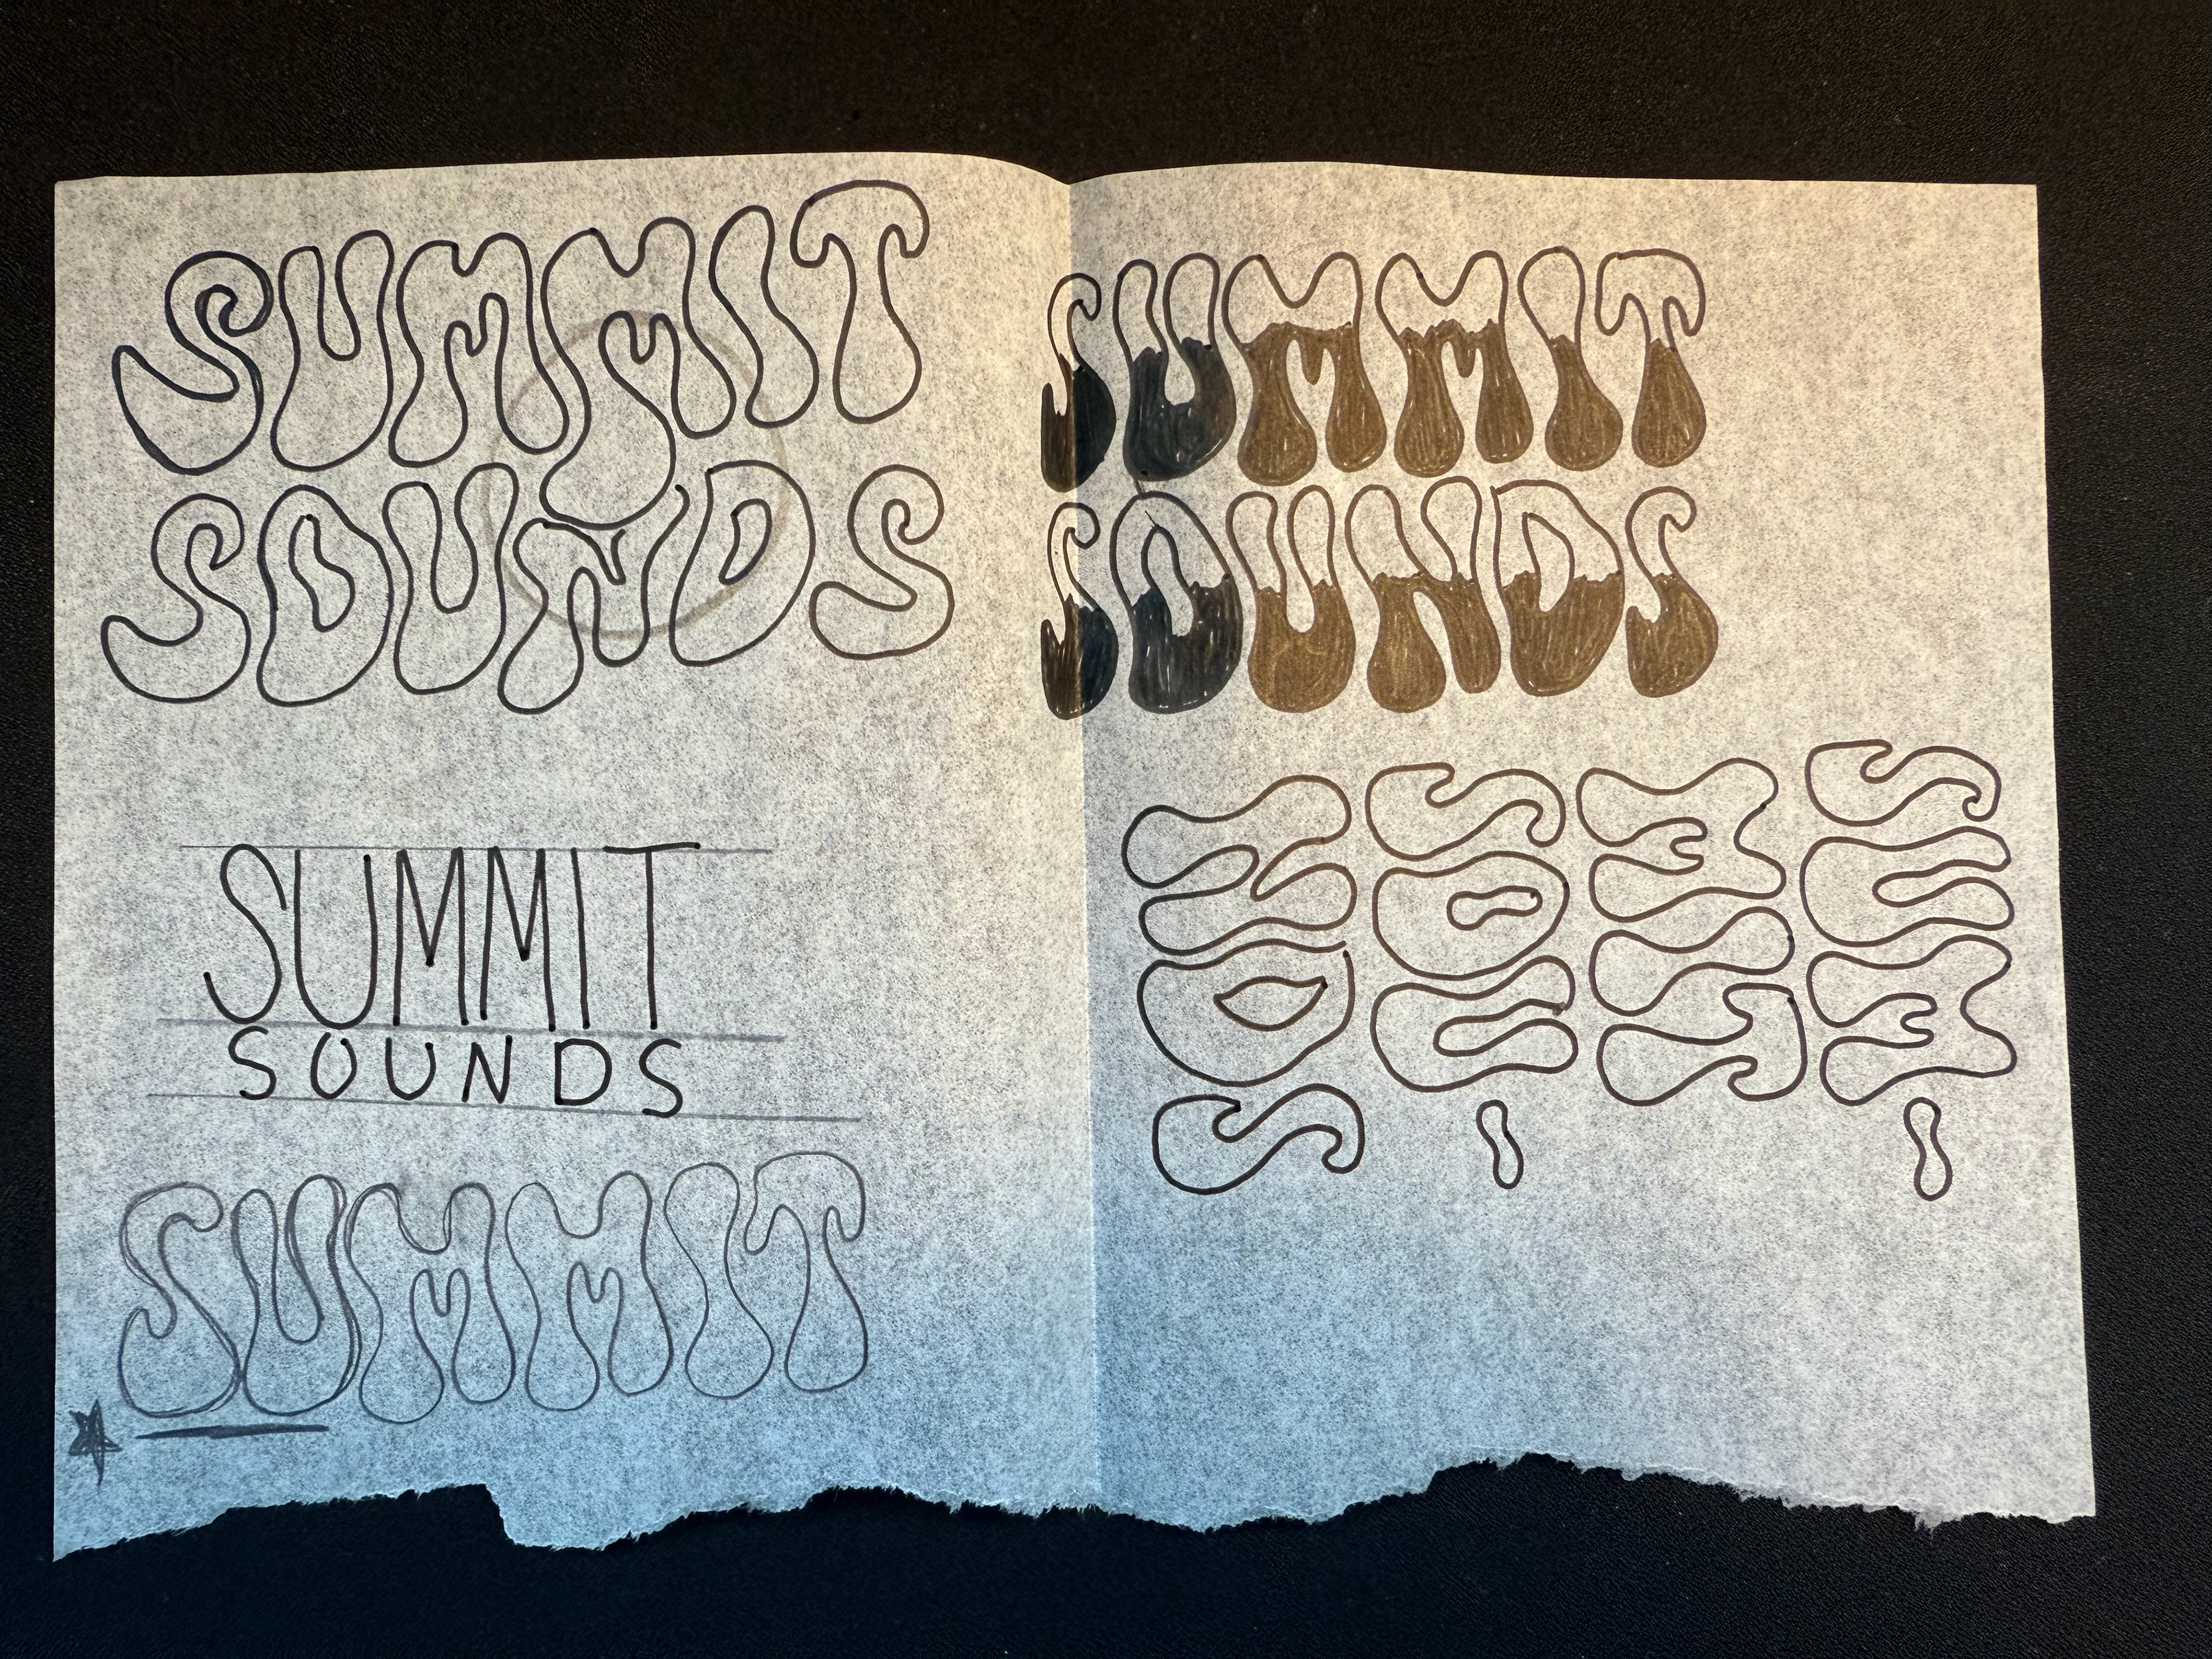 SUMMIT
SOUNDS
SUMMIT
SOUNDS
SUMMIT
SUMMIT
SOUNDS
SUM-
MIT
SOU-
NDS